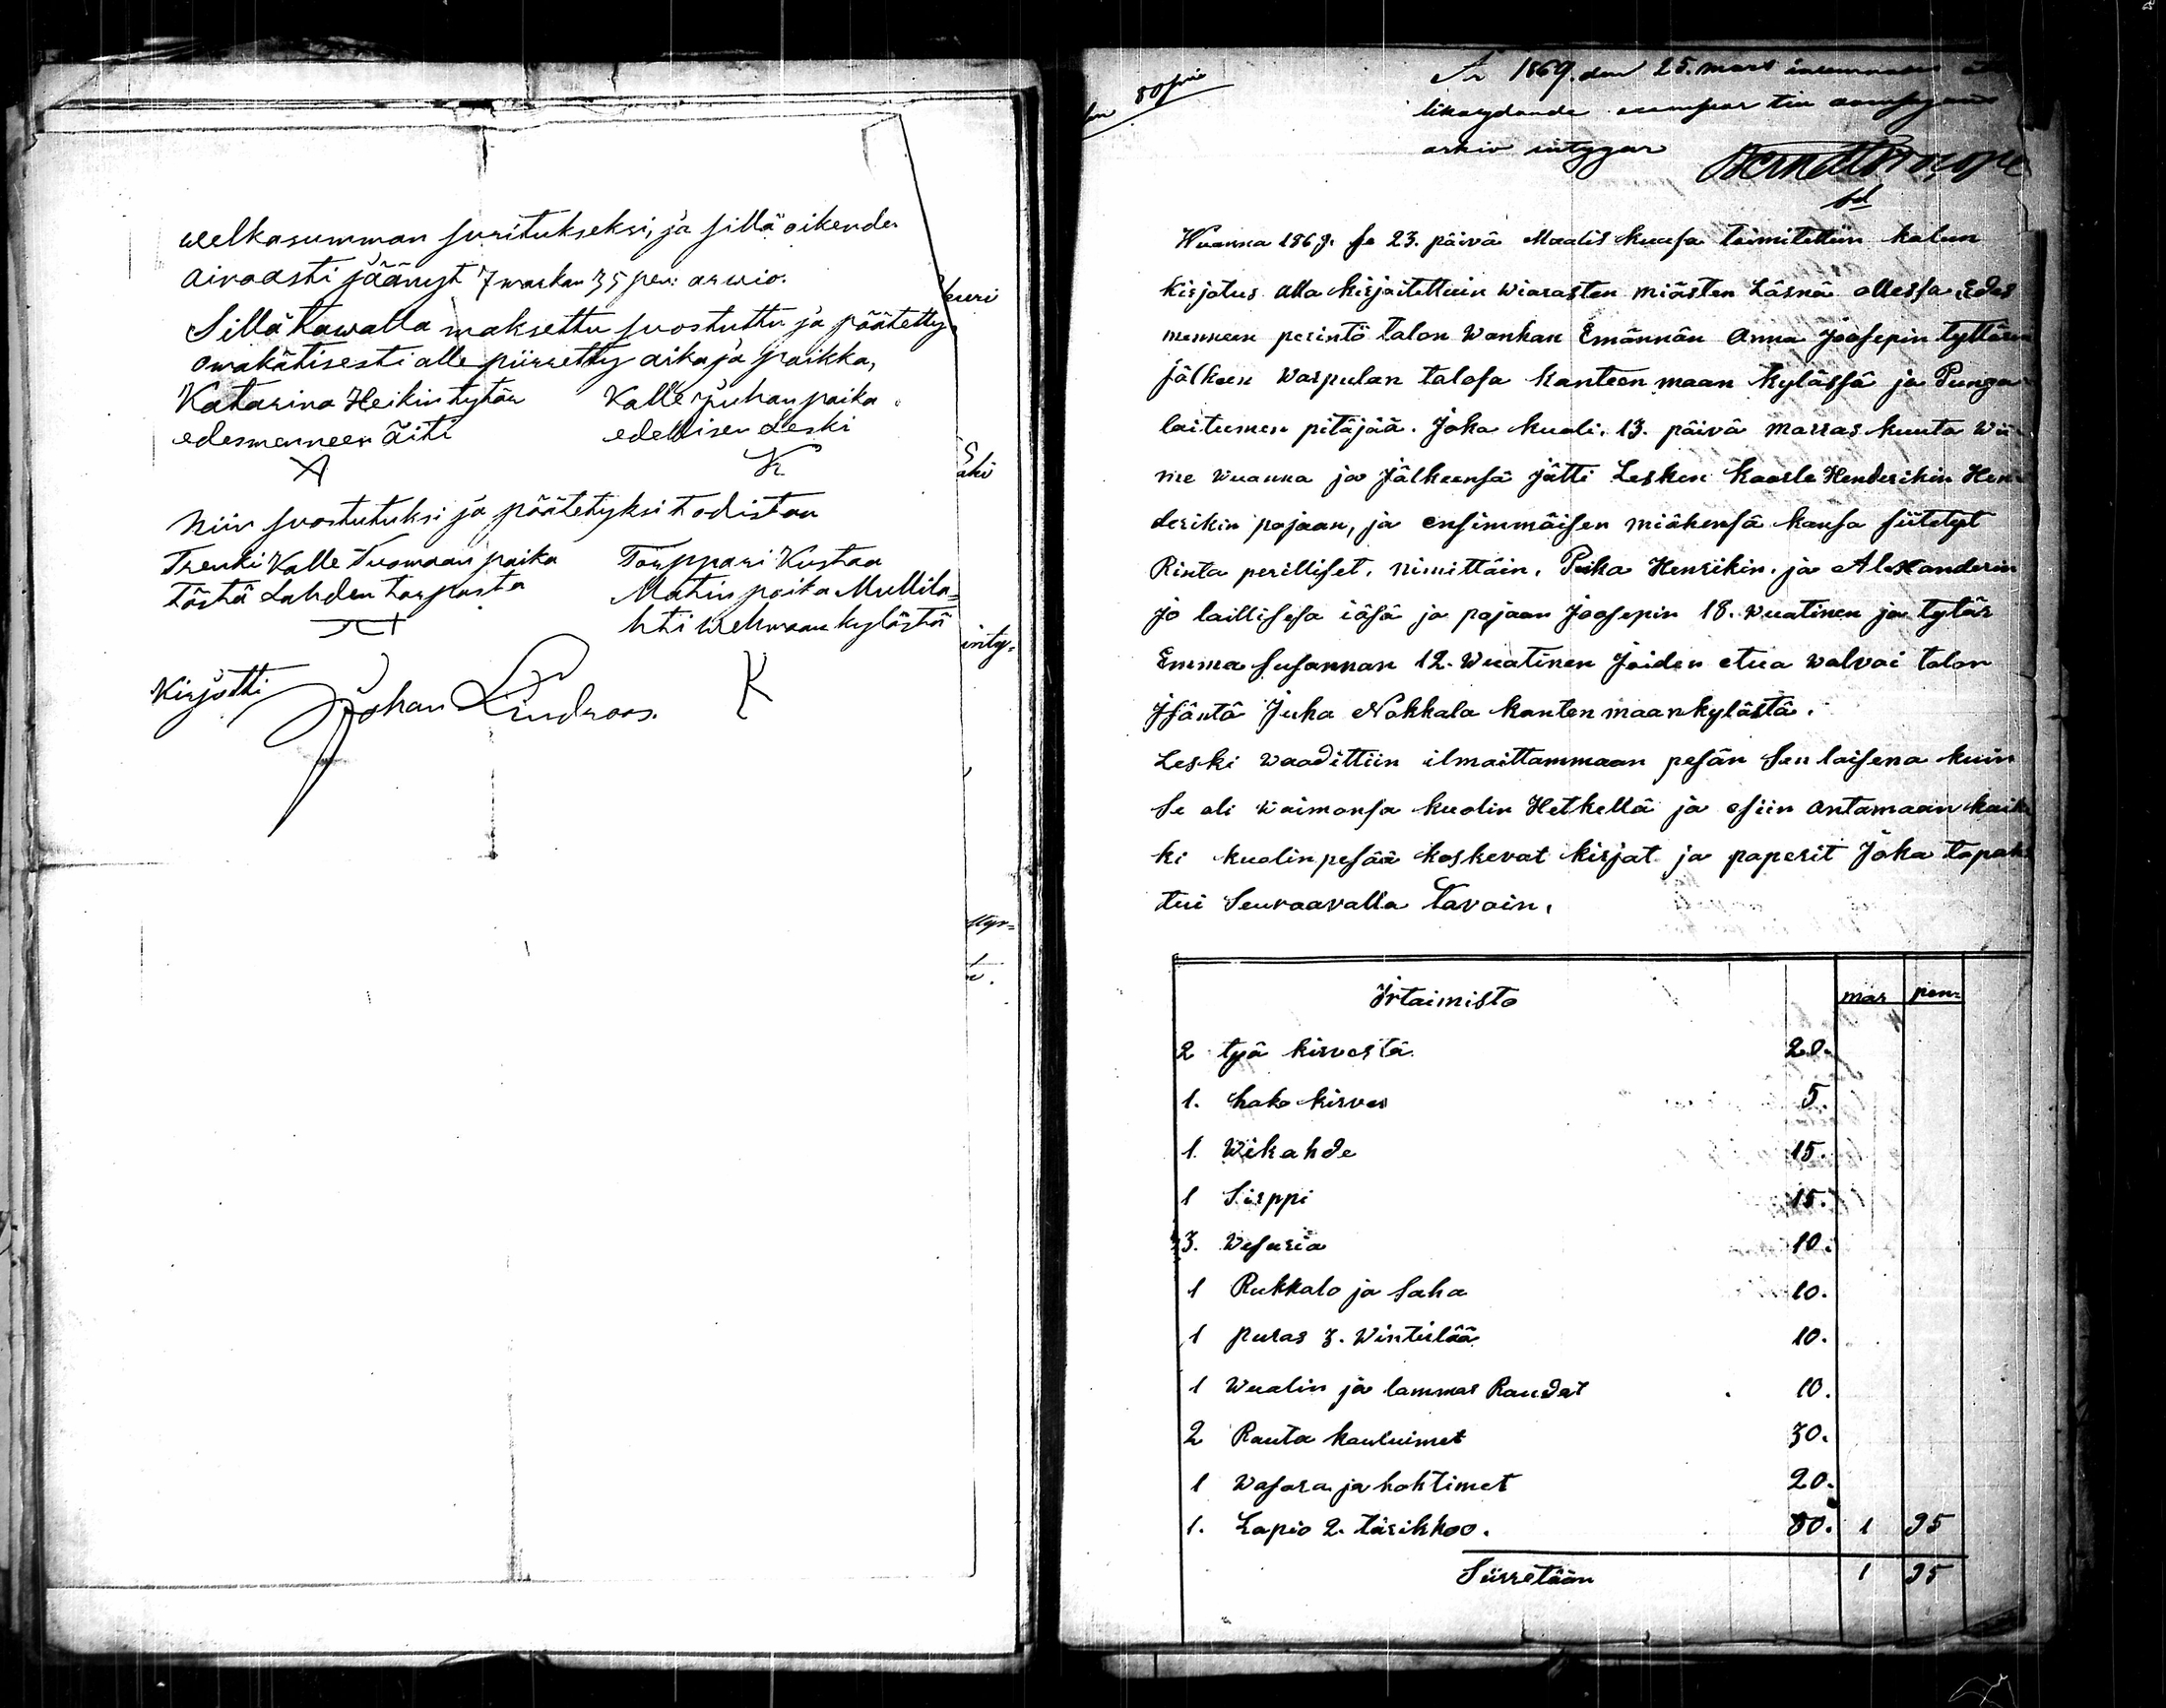 welkasumman suritukseksi, ja sillä oikeude
aivoasti jäänyt 7 markan 35 pen: arwio.
Sillä tawalla maksettu suostuttu ja päätetty
omakätisesti alle piirretty aika ja paikka,
Katarina Heikintytär Kalle Juhanpaika
edesmenneen äiti edellisen Leski
Niin suostutuksi ja päätetyksi todistaa
Trenki Kalle Tuomaan paika Torppari Kustaa
tästä Lahden torpasta Matin poika Mullila=
hti Wehmaan kylästä
Kirjotti Johan Lindroos. K
kuri
inty=
80 pen
År 1869. den 25. mars
likalydande
arkiv intyggar
Wuonna 1869. se 23. päivä Maalis kuusa toimitettiin kalun
kirjotus alla kirjoitettuin wierasten miästen Läsnä ollessa Edes
menneen perintö talon Wanhan Emännän Anna Joosepin tyttären
jälkeen Waspulan talosa Kanteen maan kylässä ja Punga
laitumen pitäjää. Joka kuoli. 13. päivä Marras kuuta wii
me wuanna ja Jälkeensä jätti Lesken Kaarle Henderikin Hen
derikin pojaan, ja ensimmäisen miähensä kansa siitetyt
Rinta perilliset, nimittäin, Poika Henrikin. ja Alexanderin
jo laillisesa iäsä ja pojaan Joosepin 18. wuatinen ja tytär
Emma Susannan 12. Wuatinen Joiden etua walvoi talon
Jsäntä Juha Nokkala kanten maankylästä.
Leski waadittiin ilmoittammaan pesän Sen laisena kuin
Se oli waimonsa kuolin Hetkellä ja esiin antamaan kaik
ki kuolinpesää koskevat kirjat ja paperit Joka tapah
tui Seuraavalla tavoin,
Irtaimisto mar pen=
2 työ kirvestä. 20.
1. hako kirves 5.
1. Wikahde 15.
1 Sirppi 15.
3. Wesuria 10.
1 Rukkalo ja Saha 10.
1 puras 3. Wintilää 10.
1 Wualin ja lammas Raudat 10.
2 Rauta kauluimet 30.
1 Wasara ja hohtimet 20.
1. Lapio 2. tärikkoo. 80. 1 95
Siirretään 1 95